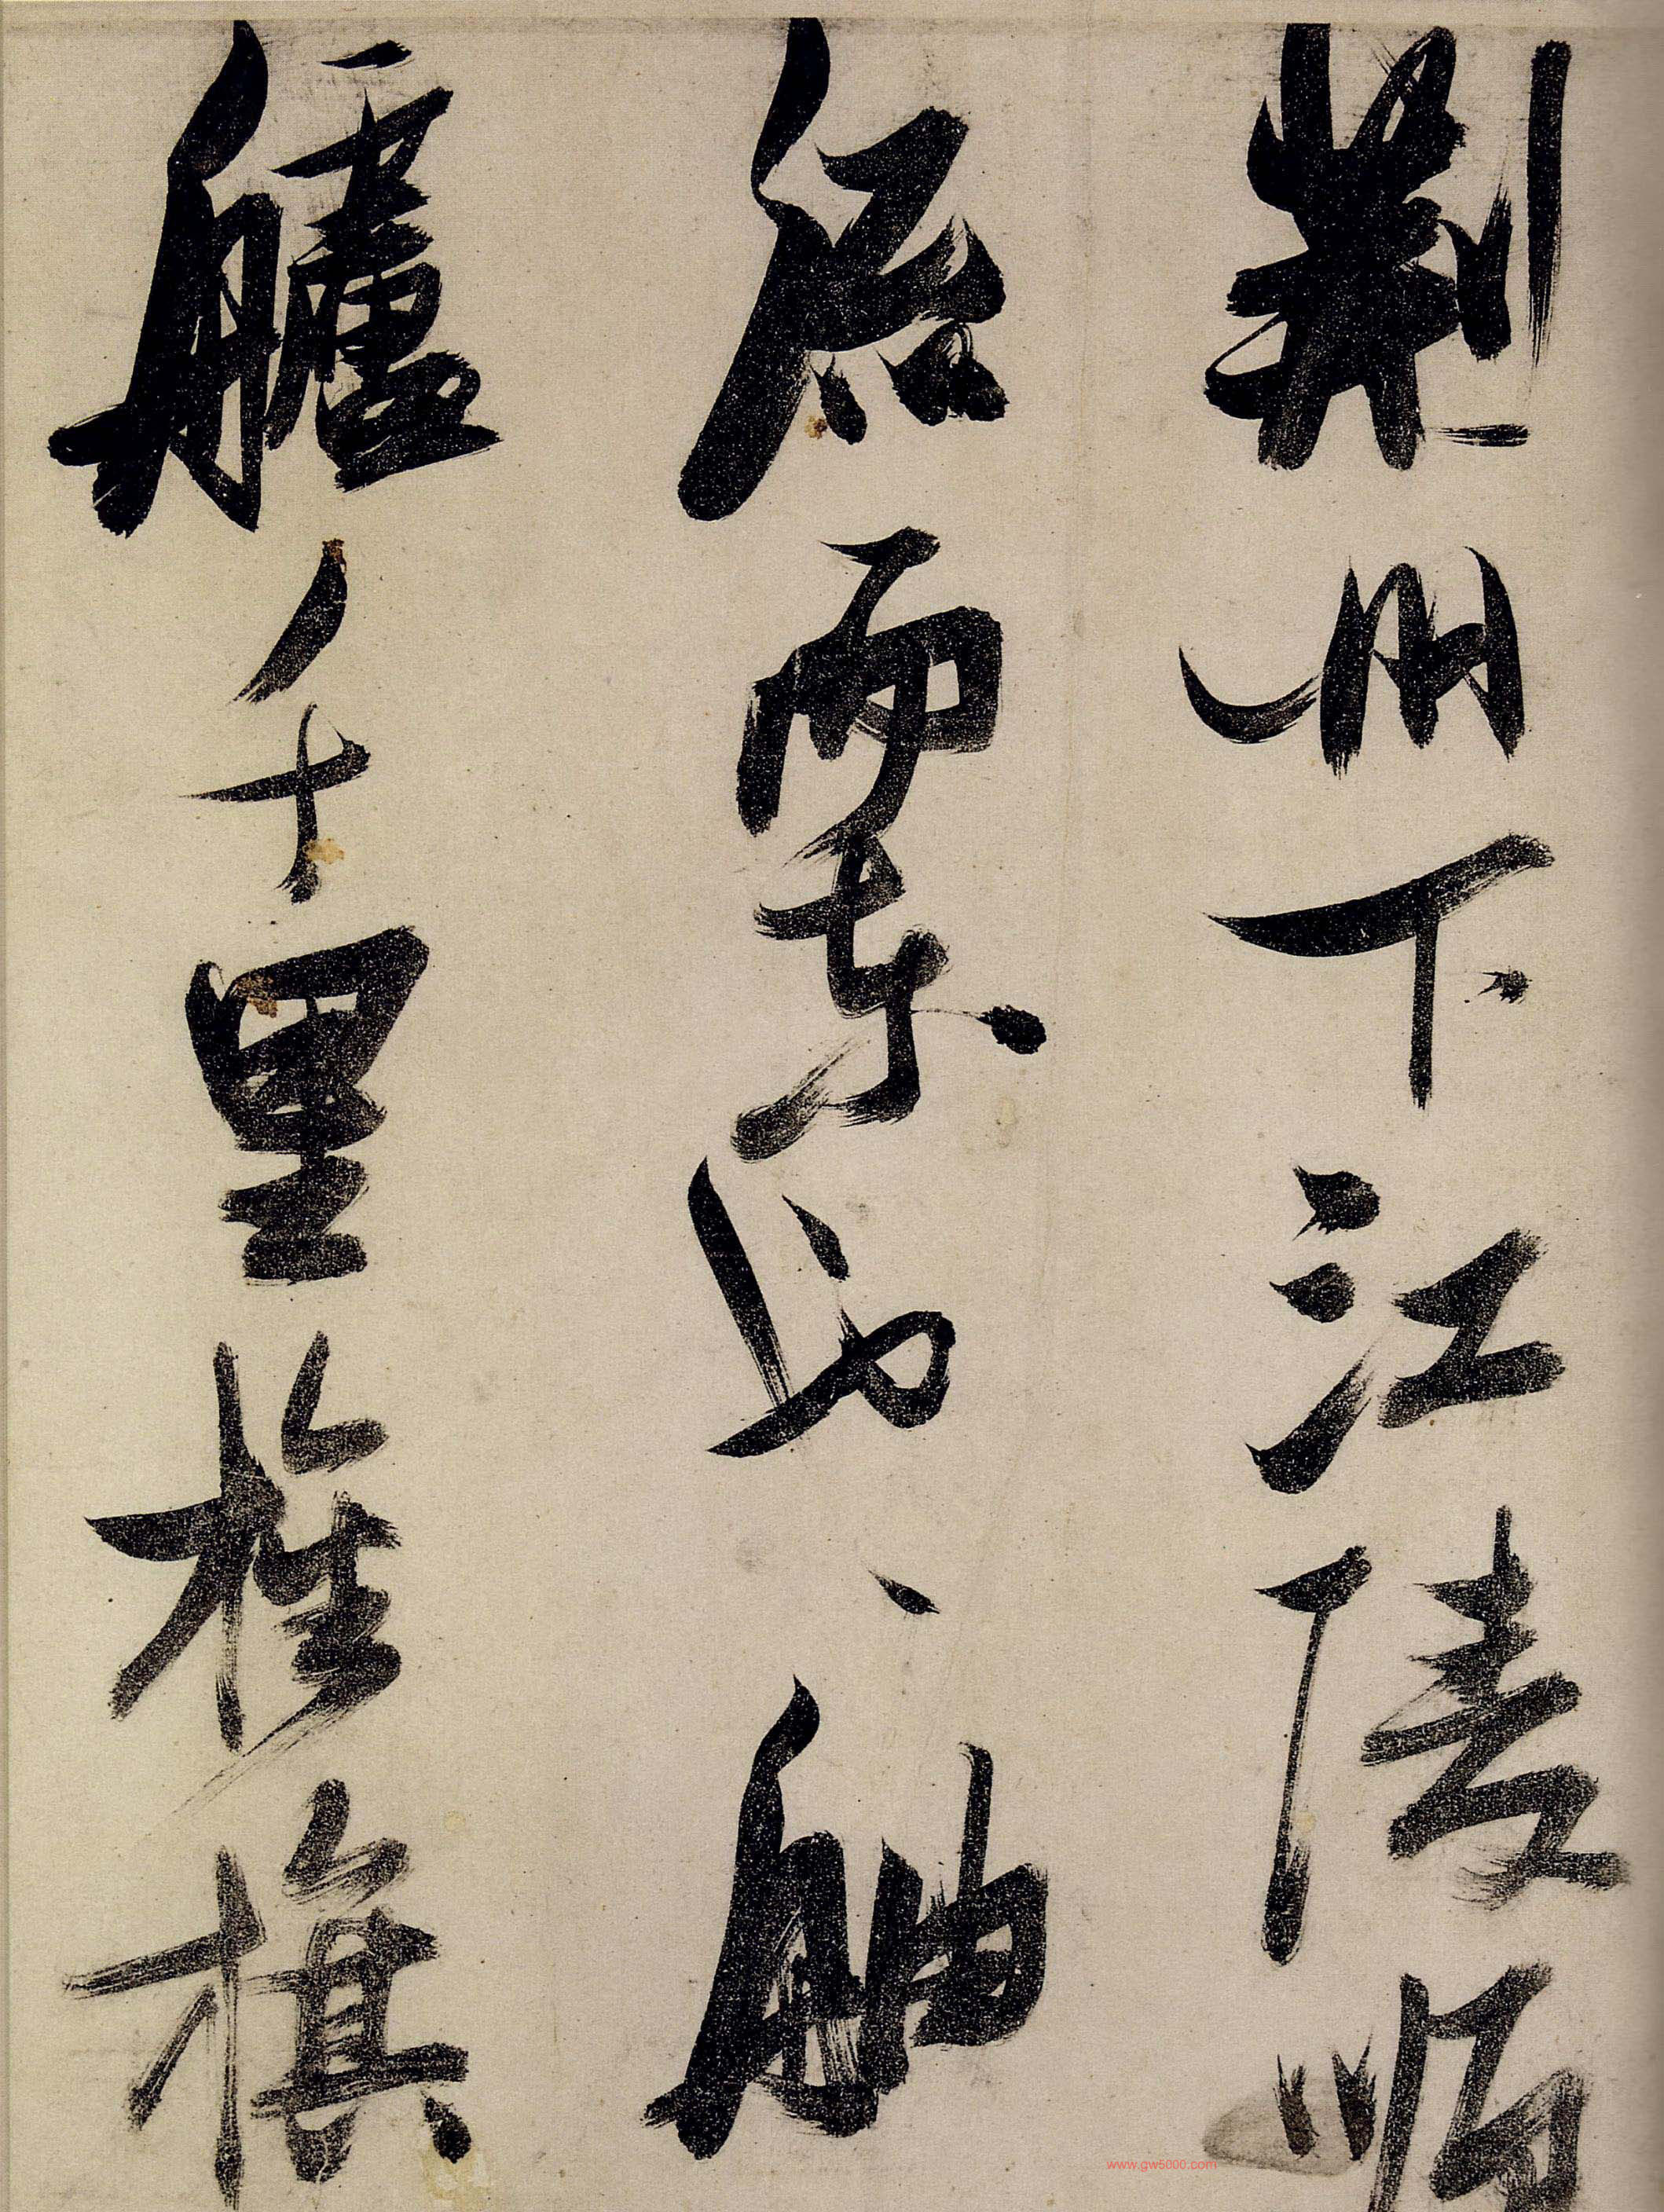 荆州下江陵顺
流而东也舳
舻千里旌旗
www.gw5000.com